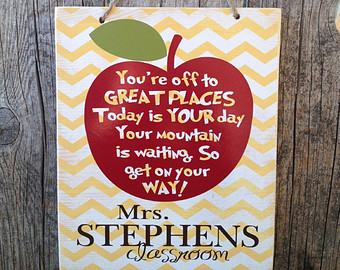 You're off to
GREAT PLACES
Today is YOUR day
Your mountain
is waiting, So
get on your
WAY!
Mrs.
STEPHENS
classroom